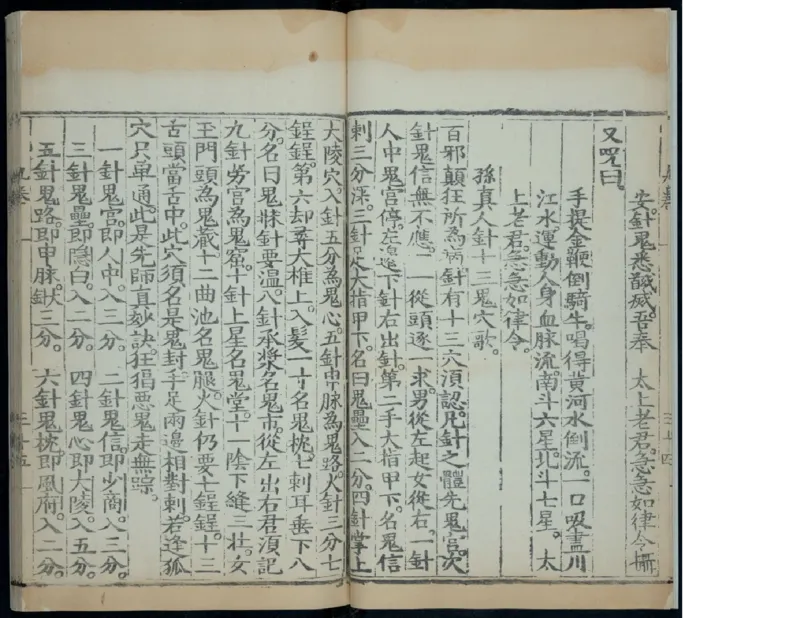 安針鬼悉馘滅吾奉 太上老君急急如律令攝
又呪曰
手提金鞭倒騎牛喝得黄河水倒流一口吸盡川
江水運動人身血脉流南斗六星北斗七星 太
上老君急急如律令
孫真人針十三鬼穴歌
百邪顛狂所為病針有十三穴須認凡針之體先鬼宫次
針鬼信無不應一一從頭逐一求男從左起女從右一針
人中鬼宫停左邊下針右出針第二手大指甲下名鬼信
刺三分深三針足大指甲下名曰鬼壘入二分四針掌上
大陵穴入針五分為鬼心五針申脉為鬼路火針三分七
鋥鋥第六却尋大椎上入髮一寸名鬼枕七刺耳垂下八
分名曰鬼牀針要温八針承漿名鬼市從左出右君須記
九針勞宫為鬼窟十針上星名鬼堂十一陰下縫三壮女
玉門頭為鬼藏十二曲池名鬼腿火針仍要七鋥鋥十三
舌頭當舌中此穴須名是鬼封手足兩邊相對刺若逢孤
穴只单通此是先師真妙訣狂猖悪鬼走無踪
一針鬼宫即人中入三分 二針鬼信即少商入三分
三針鬼壘即隱白入二分 四針鬼心即大陵入五分
五針鬼路即申脉火針三分 六針鬼枕即風府入二分